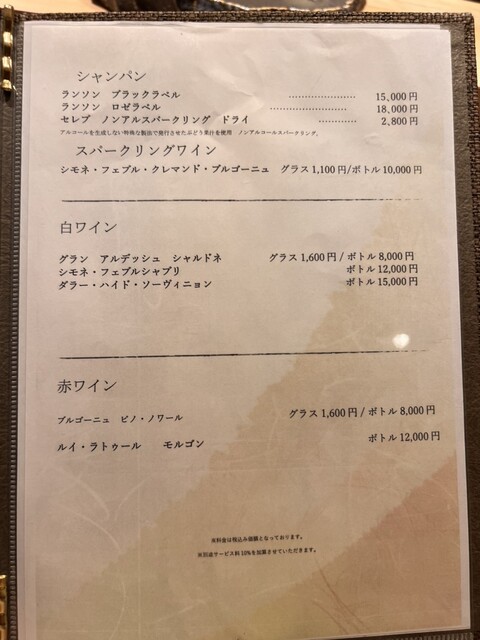 シャンパン
ランソン ブラックラベル ............... 15,000円
ランソン ロゼラベル ............... 18,000円
セレブ ノンアルスパークリング ドライ ............ 2,800円
アルコールを生成しない特殊な製法で発行させたぶどう果汁を使用 ノンアルコールスパークリング。
スパークリングワイン
シモネ・フェブル・クレマンド・ブルゴーニュ グラス1,100円/ボトル10,000円
白ワイン
グラン アルデッシュ シャルドネ グラス1,600円 / ボトル8,000円
シモネ・フェブルシャブリ ボトル12,000円
ダラー・ハイド・ソーヴィニョン ボトル15,000円
赤ワイン
ブルゴーニュ ピノ・ノワール グラス1,600円 / ボトル8,000円
ルイ・ラトゥール モルゴン ボトル12,000円
※料金は税込み価格となっております。
※別途サービス料10%を加算させていただきます。